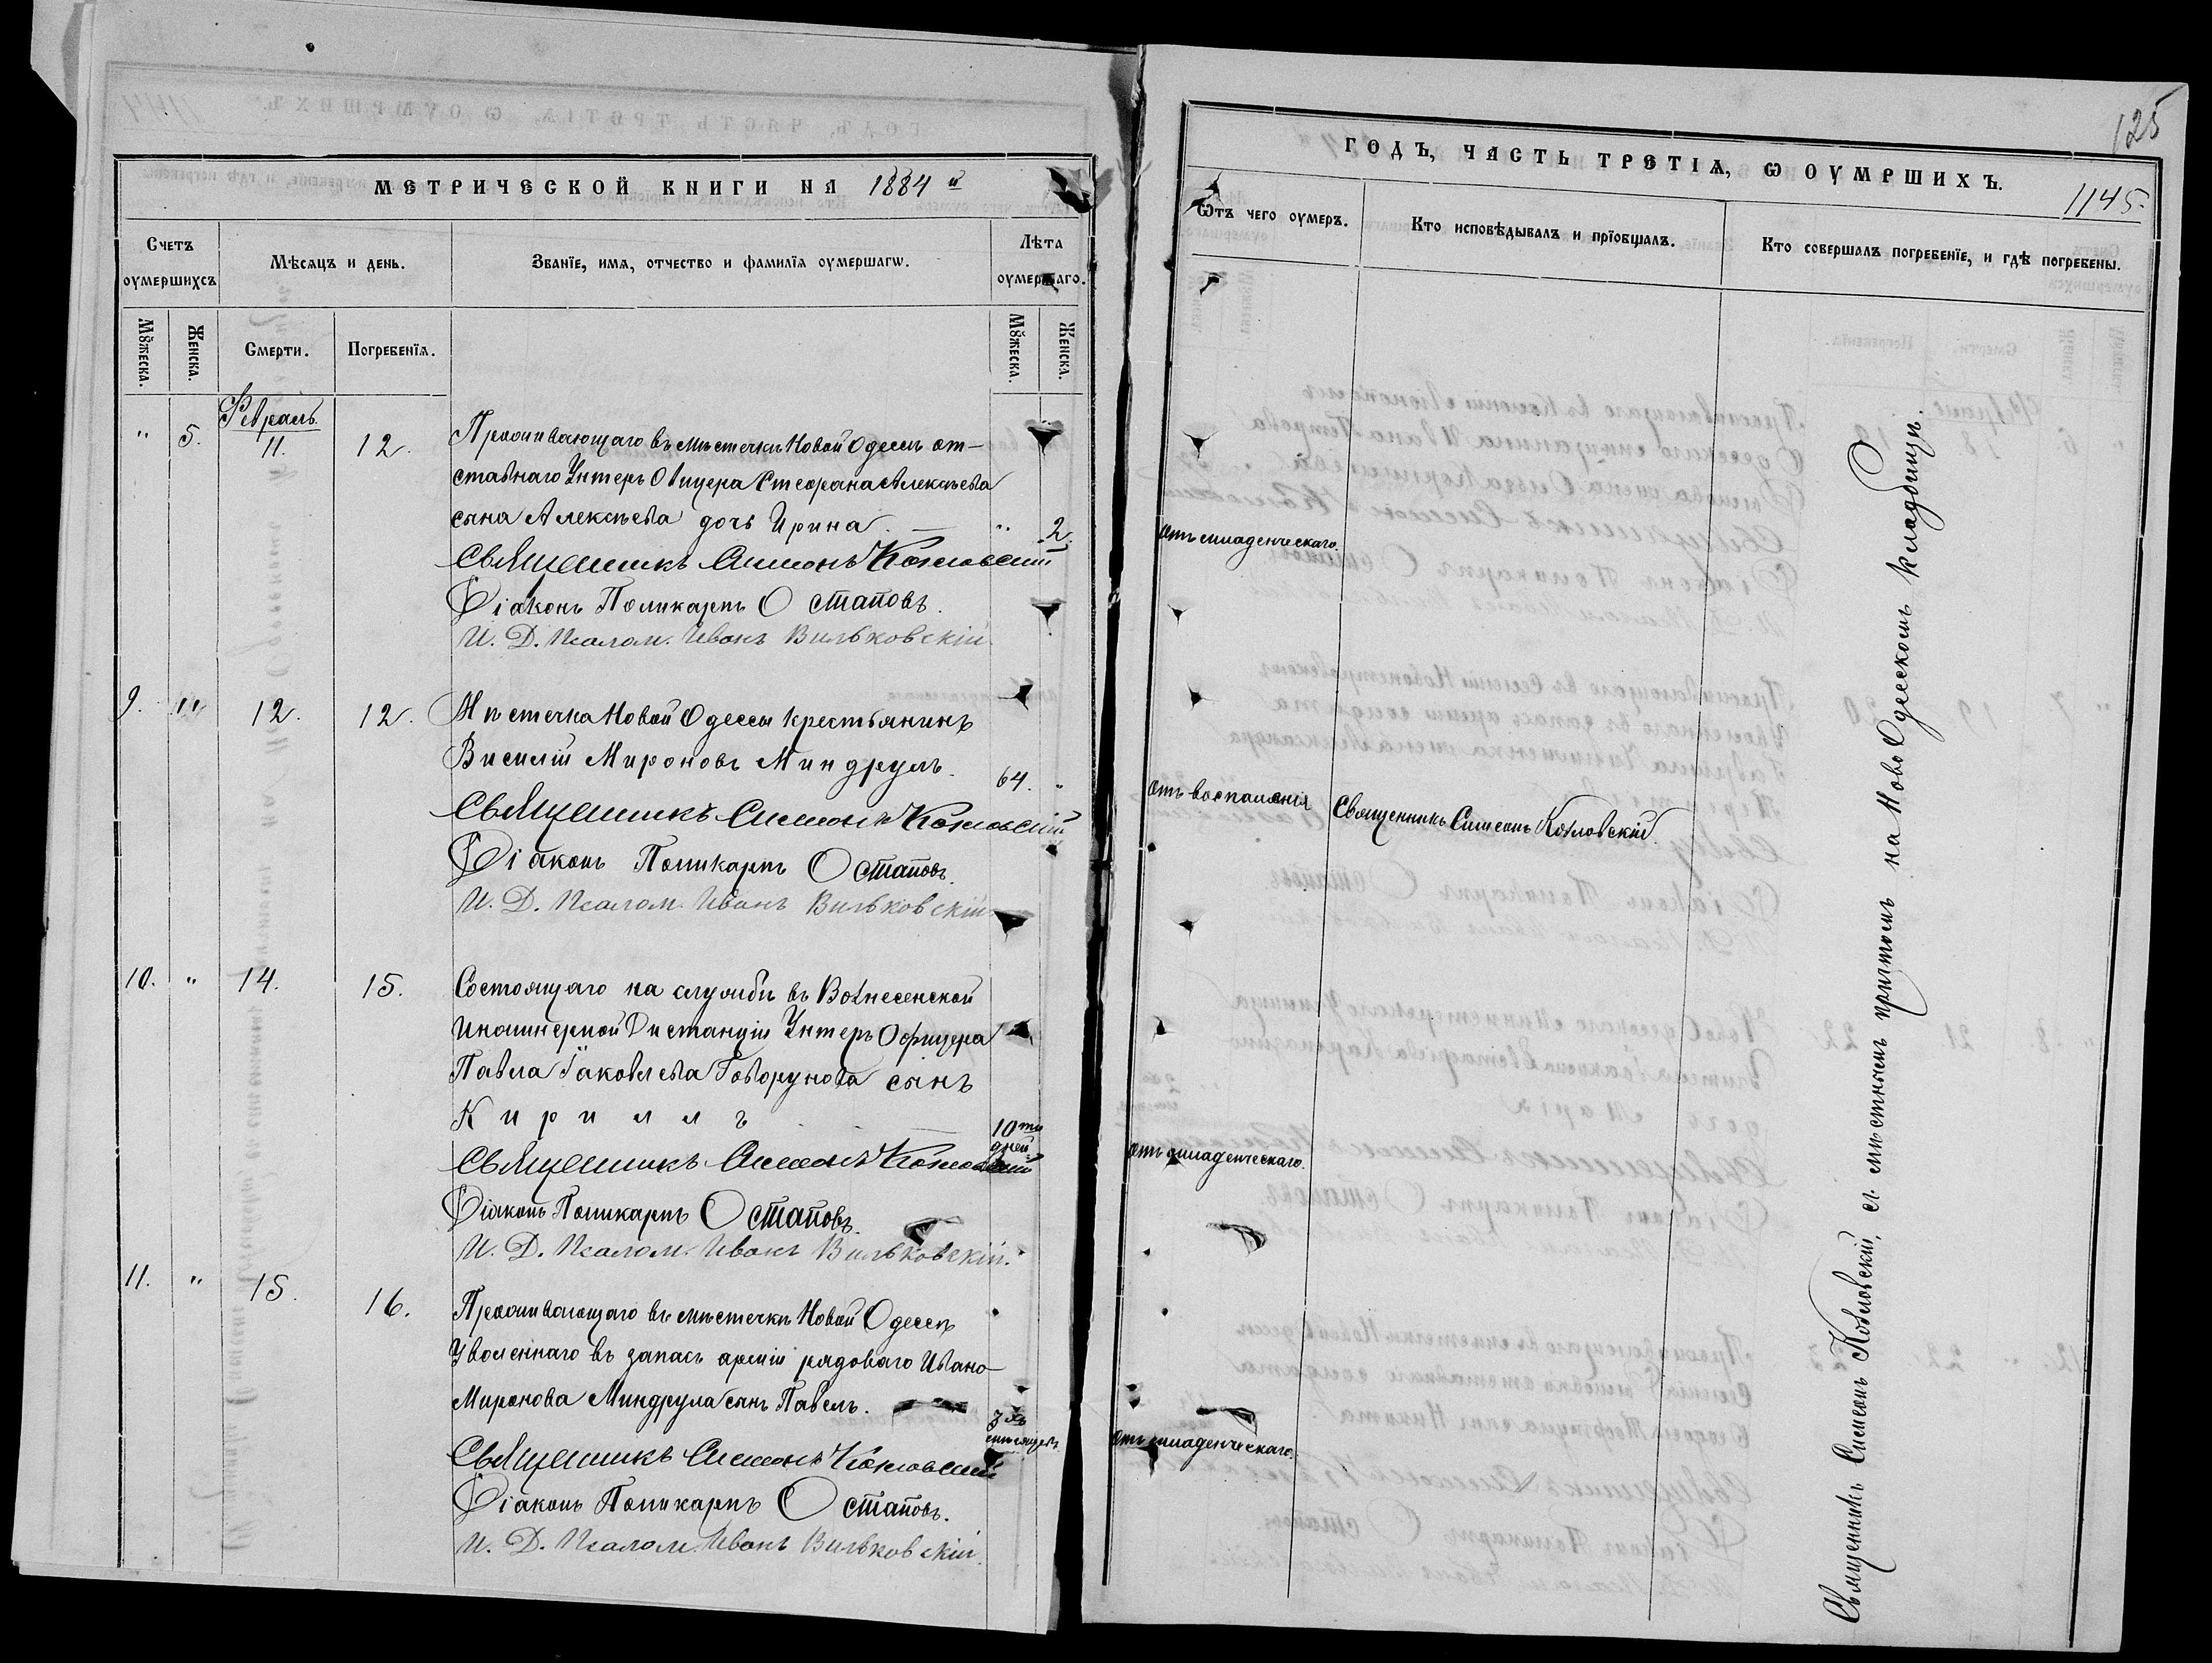 МЕТРИЧЕСКОЙ КНИГИ НА 1884 й
Счетъ оумершихсъ
Мѣсяцъ и день.
Званїе, имѧ, отчество и фамилїѧ оумершагѡ.
Лѣта оумершаго.
Мꙋжеска.
Женска.
Смерти.
Погребенїѧ.
Мꙋжеска.
Женска.
Февраль.
" 5. 11. 12. Проживающаго въ мѣстечкѣ Новой Одессѣ от-
ставнаго Унтеръ Офицера Стефана Алексѣева
сына Алексѣева дочь Ирина. — " 2.
Священникъ Симеонъ Козловскій
Діаконъ Поликарпъ Остаповъ.
И. Д. Псалом. Иванъ Вильковскій.
9. " 12. 12. Мѣстечка Новой Одессы крестьянинъ
Василій Мироновъ Миндрулъ. 64. "
Священникъ Симеонъ Козловскій
Діаконъ Поликарпъ Остаповъ.
И. Д. Псалом. Иванъ Вильковскій.
10. " 14. 15. Состоящаго на службѣ въ Вознесенской
Инженерной Дистанціи Унтеръ Офицера
Павла Іаковлева Говорунова сынъ
Кириллъ — 10ти дней
Священникъ Симеонъ Козловскій
Діаконъ Поликарпъ Остаповъ.
И. Д. Псалом. Иванъ Вильковскій.
11. " 15. 16. Проживающаго въ мѣстечкѣ Новой Одессѣ
Уволеннаго въ запасъ арміи рядоваго Ивана
Миронова Миндрула сынъ Павелъ. 3хъ мѣсяцевъ
Священникъ Симеонъ Козловскій
Діаконъ Поликарпъ Остаповъ.
И. Д. Псалом. Иванъ Вильковскій.
125
ГОДЪ, ЧАСТЬ ТРЕТІѦ, Ѡ ОУМРШИХЪ.
1145.
Ѿтъ чего оумеръ.
Кто исповѣдывалъ и прїобщалъ.
Кто совершалъ погребенїе, и гдѣ погребены.
отъ младенческаго.
отъ воспаленія
Священникъ Симеонъ Козловскій.
отъ младенческаго.
отъ младенческаго.
Священникъ Симеонъ Козловскій, съ мѣстнымъ причтомъ на Ново Одесскомъ кладбищѣ.